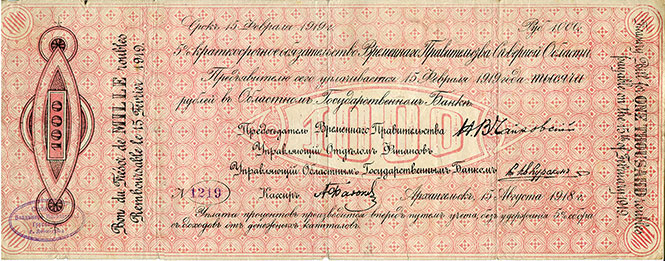 Срокъ 15 Февраля 1919 г.
Руб. 1000.
5% краткосрочное обязательство Временнаго Правительства Сѣверной Области
Предъявителю сего уплачивается 15 Февраля 1919 года тысяча
рублей въ Областномъ Государственномъ Банкѣ
Председатель Временнаго Правительства
Управляющій Отдѣломъ Финансовъ
Управляющій Областнымъ Государственнымъ Банкомъ
№ 1219
Кассиръ
Архангельскъ, 15 Августа 1918 г.
Уплата процентовъ производится впередъ путемъ учета, безъ удержанія 5% сбора
съ доходовъ отъ денежныхъ капиталовъ.
1000
1000
Bon du Trésor de MILLE roubles
Remboursable le 15 Février 1919
Treasury Bill for ONE THOUSAND roubles
payable on the 15th of February 1919